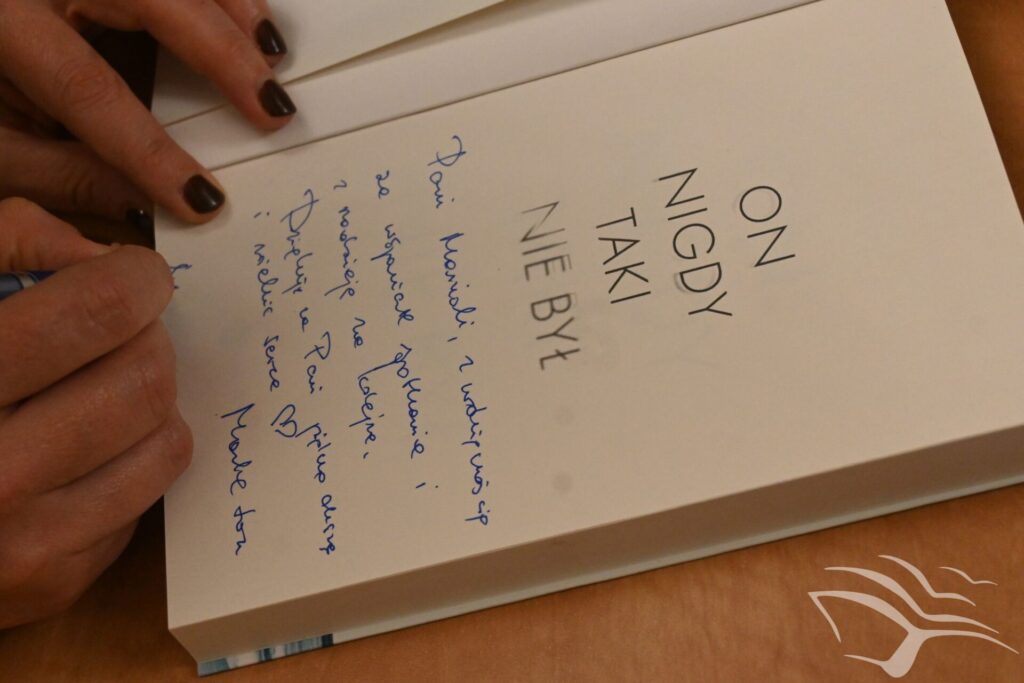 ON
NIGDY
TAKI
NIE BYŁ
Pani Marioli, z wdzięcznością
za wspaniałe spotkanie i
z nadzieją na kolejne.
Dziękuję za Pani piękną duszę
i wielkie serce